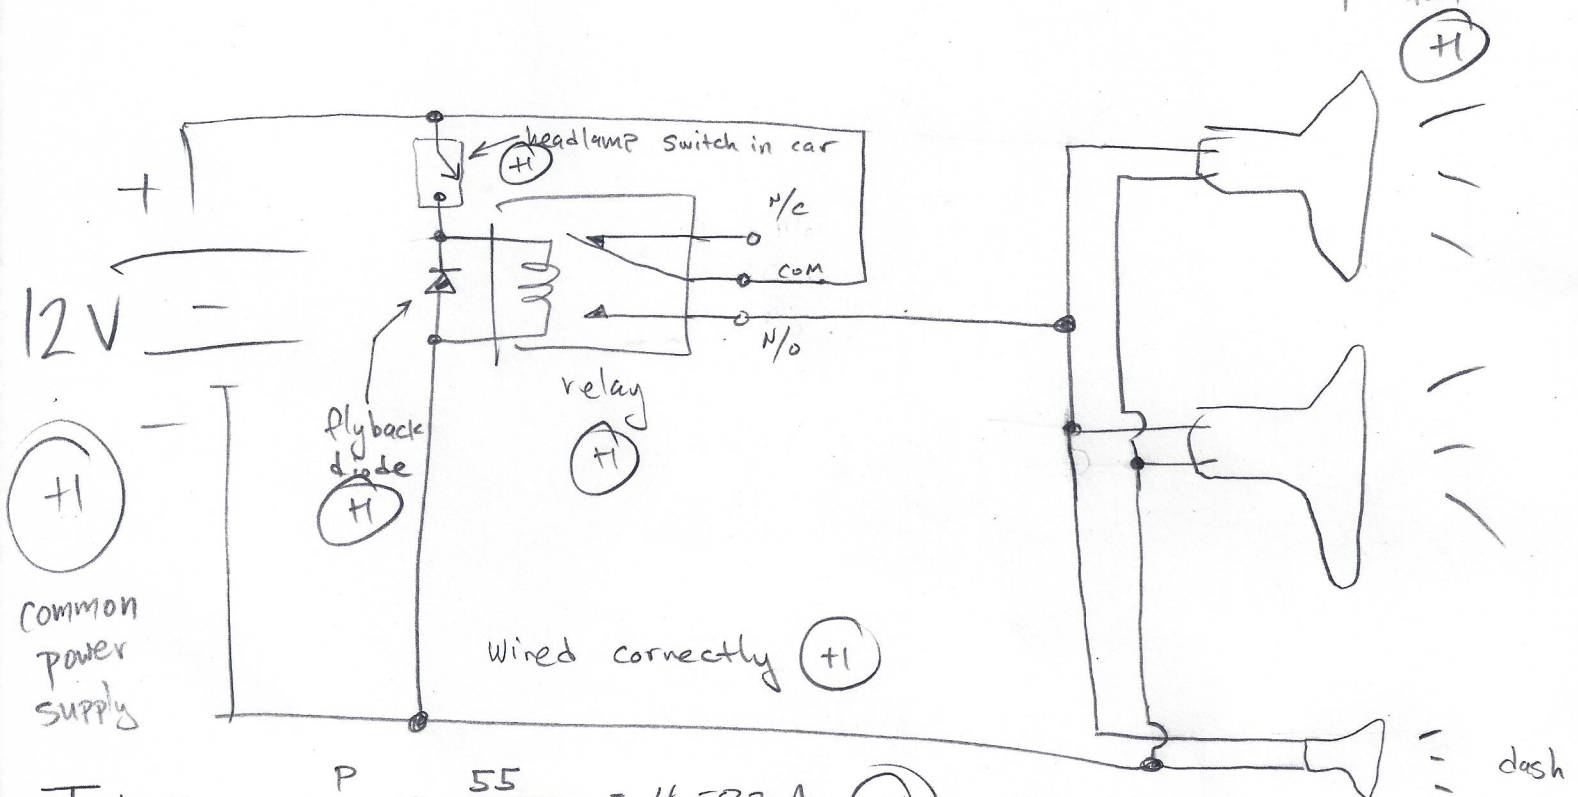 +1
headlamp switch in car
+1
+
N/C
COM
12V
N/O
relay
+1
flyback
diode
+1
-
+1
common
power
supply
Wired correctly +1
dash
P 55